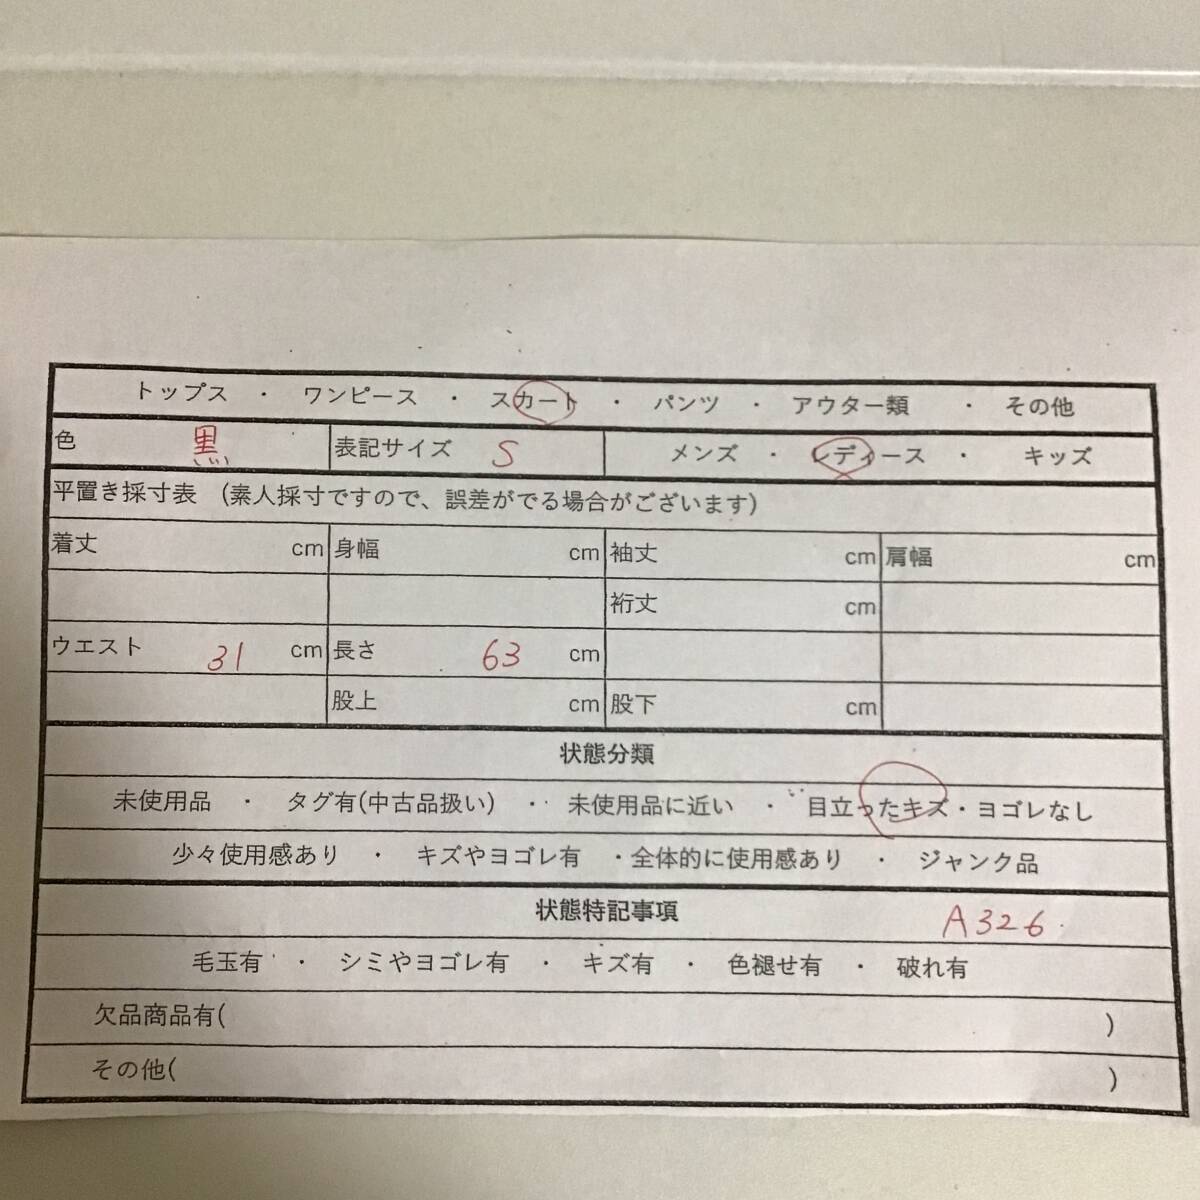 トップス ・ ワンピース ・ スカート ・ パンツ ・ アウター類 ・ その他
色 黒 表記サイズ S メンズ ・ レディース ・ キッズ
平置き採寸表 (素人採寸ですので、誤差がでる場合がございます)
着丈 cm 身幅 cm 袖丈 cm 肩幅 cm
裄丈 cm
ウエスト 31 cm 長さ 63 cm
股上 cm 股下 cm
状態分類
未使用品 ・ タグ有(中古品扱い) ・ 未使用品に近い ・ 目立ったキズ・ヨゴレなし
少々使用感あり ・ キズやヨゴレ有 ・全体的に使用感あり ・ ジャンク品
状態特記事項 A326
毛玉有 ・ シミやヨゴレ有 ・ キズ有 ・ 色褪せ有 ・ 破れ有
欠品商品有( )
その他( )